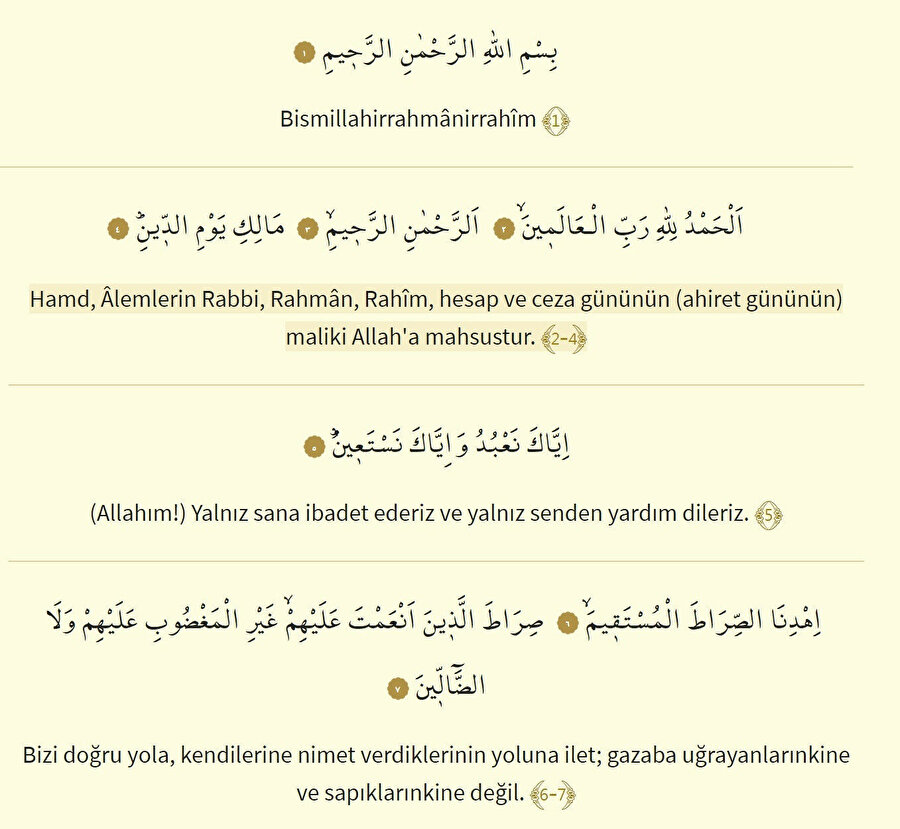 بِسْمِ اللّٰهِ الرَّحْمٰنِ الرَّح۪يمِ ١
Bismillahirrahmânirrahîm ﴾1﴿
اَلْحَمْدُ لِلّٰهِ رَبِّ الْعَالَم۪ينَۙ ٢ اَلرَّحْمٰنِ الرَّح۪يمِۙ ٣ مَالِكِ يَوْمِ الدّ۪ينِۜ ٤
Hamd, Âlemlerin Rabbi, Rahmân, Rahîm, hesap ve ceza gününün (ahiret gününün)
maliki Allah'a mahsustur. ﴾2-4﴿
اِيَّاكَ نَعْبُدُ وَاِيَّاكَ نَسْتَع۪ينُۜ ٥
(Allahım!) Yalnız sana ibadet ederiz ve yalnız senden yardım dileriz. ﴾5﴿
اِهْدِنَا الصِّرَاطَ الْمُسْتَق۪يمَۙ ٦ صِرَاطَ الَّذ۪ينَ اَنْعَمْتَ عَلَيْهِمْۙ غَيْرِ الْمَغْضُوبِ عَلَيْهِمْ وَلَا
الضَّٓالّ۪ينَ ٧
Bizi doğru yola, kendilerine nimet verdiklerinin yoluna ilet; gazaba uğrayanlarınkine
ve sapıklarınkine değil. ﴾6-7﴿